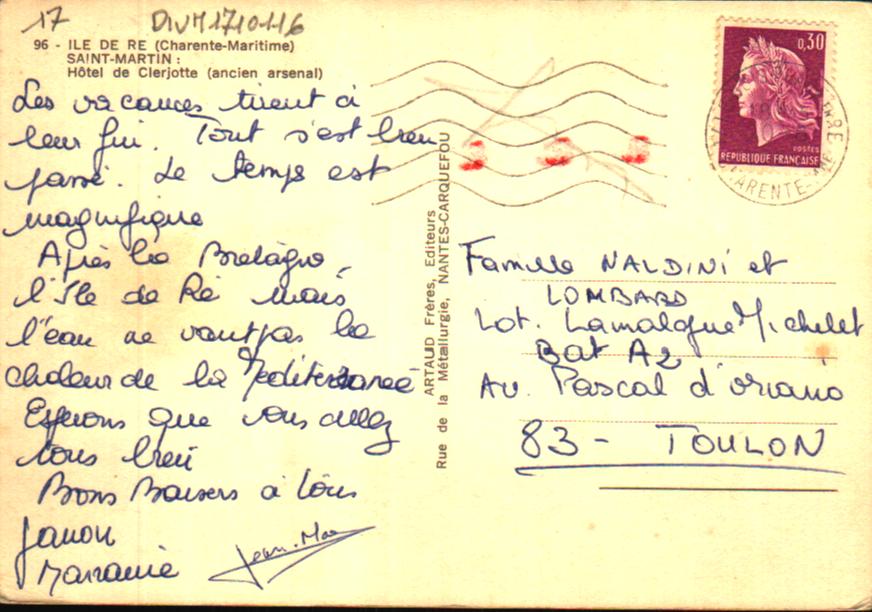 17 DIVM1710116
96 - ILE DE RE (Charente-Maritime)
SAINT-MARTIN :
Hôtel de Clerjotte (ancien arsenal)
Les vacances tirent à
leur fin. Tout s'est bien
passé. Le temps est
magnifique
Après la Bretagne,
l'Ile de Ré mais
l'eau ne vaut pas la
chaleur de la Méditerranée
Espérons que vous allez
tous bien
Bons Baisers à tous
Janou
Jean-Marc
ARTAUD Frères, Editeurs
Rue de la Métallurgie, NANTES-CARQUEFOU
0,30
POSTES
REPUBLIQUE FRANÇAISE
Famille NALDINI et
LOMBARD
Lot. Lamalgue Michelet
Bat A2
Av. Pascal d'oriano
83 - TOULON